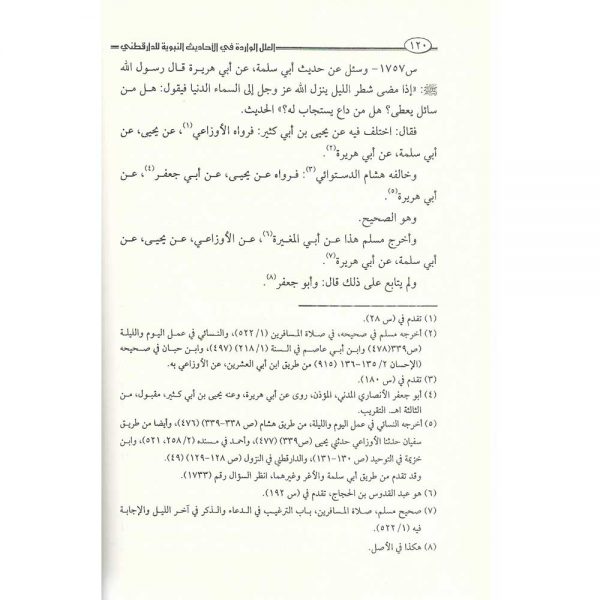 ١٢٠ العلل الواردة في الأحاديث النبوية للدارقطني
س١٧٥٧- وسئل عن حديث أبي سلمة، عن أبي هريرة قال رسول الله
ﷺ: «إذا مضى شطر الليل ينزل الله عز وجل إلى السماء الدنيا فيقول: هل من
سائل يعطى؟ هل من داع يستجاب له؟» الحديث.
فقال: اختلف فيه عن يحيى بن أبي كثير: فرواه الأوزاعي(١)، عن يحيى، عن
أبي سلمة، عن أبي هريرة(٢).
وخالفه هشام الدستوائي(٣): فرواه عن يحيى، عن أبي جعفر(٤)، عن
أبي هريرة(٥).
وهو الصحيح.
وأخرج مسلم هذا عن أبي المغيرة(٦)، عن الأوزاعي، عن يحيى، عن
أبي سلمة، عن أبي هريرة(٧).
ولم يتابع على ذلك قال: وأبو جعفر(٨).
(١) تقدم في (س ٢٨).
(٢) أخرجه مسلم في صحيحه، في صلاة المسافرين (١/ ٥٢٢)، والنسائي في عمل اليوم والليلة
ص٣٣٩(٤٧٨) وابن أبي عاصم في السنة (١/ ٢١٨) (٤٩٧) وابن حبان في صحيحه
الإحسان ٢/ ١٣٥-١٣٦ (٩١٥) من طريق ابن أبي العشرين، عن الأوزاعي به.
(٣) تقدم في (س ١٨٠).
(٤) أبو جعفر الأنصاري المدني، المؤذن، روى عن أبي هريرة، وعنه يحيى بن أبي كثير، مقبول، من
الثالثة اهـ. التقريب.
(٥) أخرجه النسائي في عمل اليوم والليلة، من طريق هشام (ص ٣٣٨-٣٣٩) (٤٧٦)، وأيضا من طريق
سفيان حدثنا الأوزاعي حدثني يحيى (ص٣٣٩) (٤٧٧)، وأحمد في مسنده (٢/ ٢٥٨، ٥٢١)، وابن
خزيمة في التوحيد (ص ١٣٠-١٣١)، والدارقطني في النزول (ص ١٢٨-١٢٩) (٤٩).
وقد تقدم من طريق أبي سلمة والأغر وغيرهما، انظر السؤال رقم (١٧٣٣).
(٦) هو عبد القدوس بن الحجاج، تقدم في (س ١٩٢).
(٧) صحيح مسلم، صلاة المسافرين، باب الترغيب في الدعاء والذكر في آخر الليل والإجابة
فيه (١/ ٥٢٢).
(٨) هكذا في الأصل.